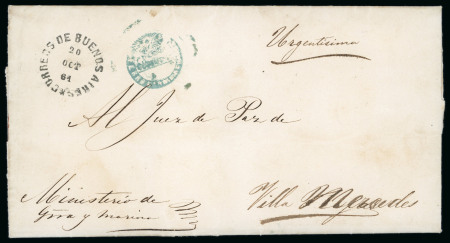 CORREOS DE BUENOS AIRES
20
OCT
61
Urgentísimo
Al Juez de Paz de
Ministerio de
Grra y Marina
Villa Mercedes